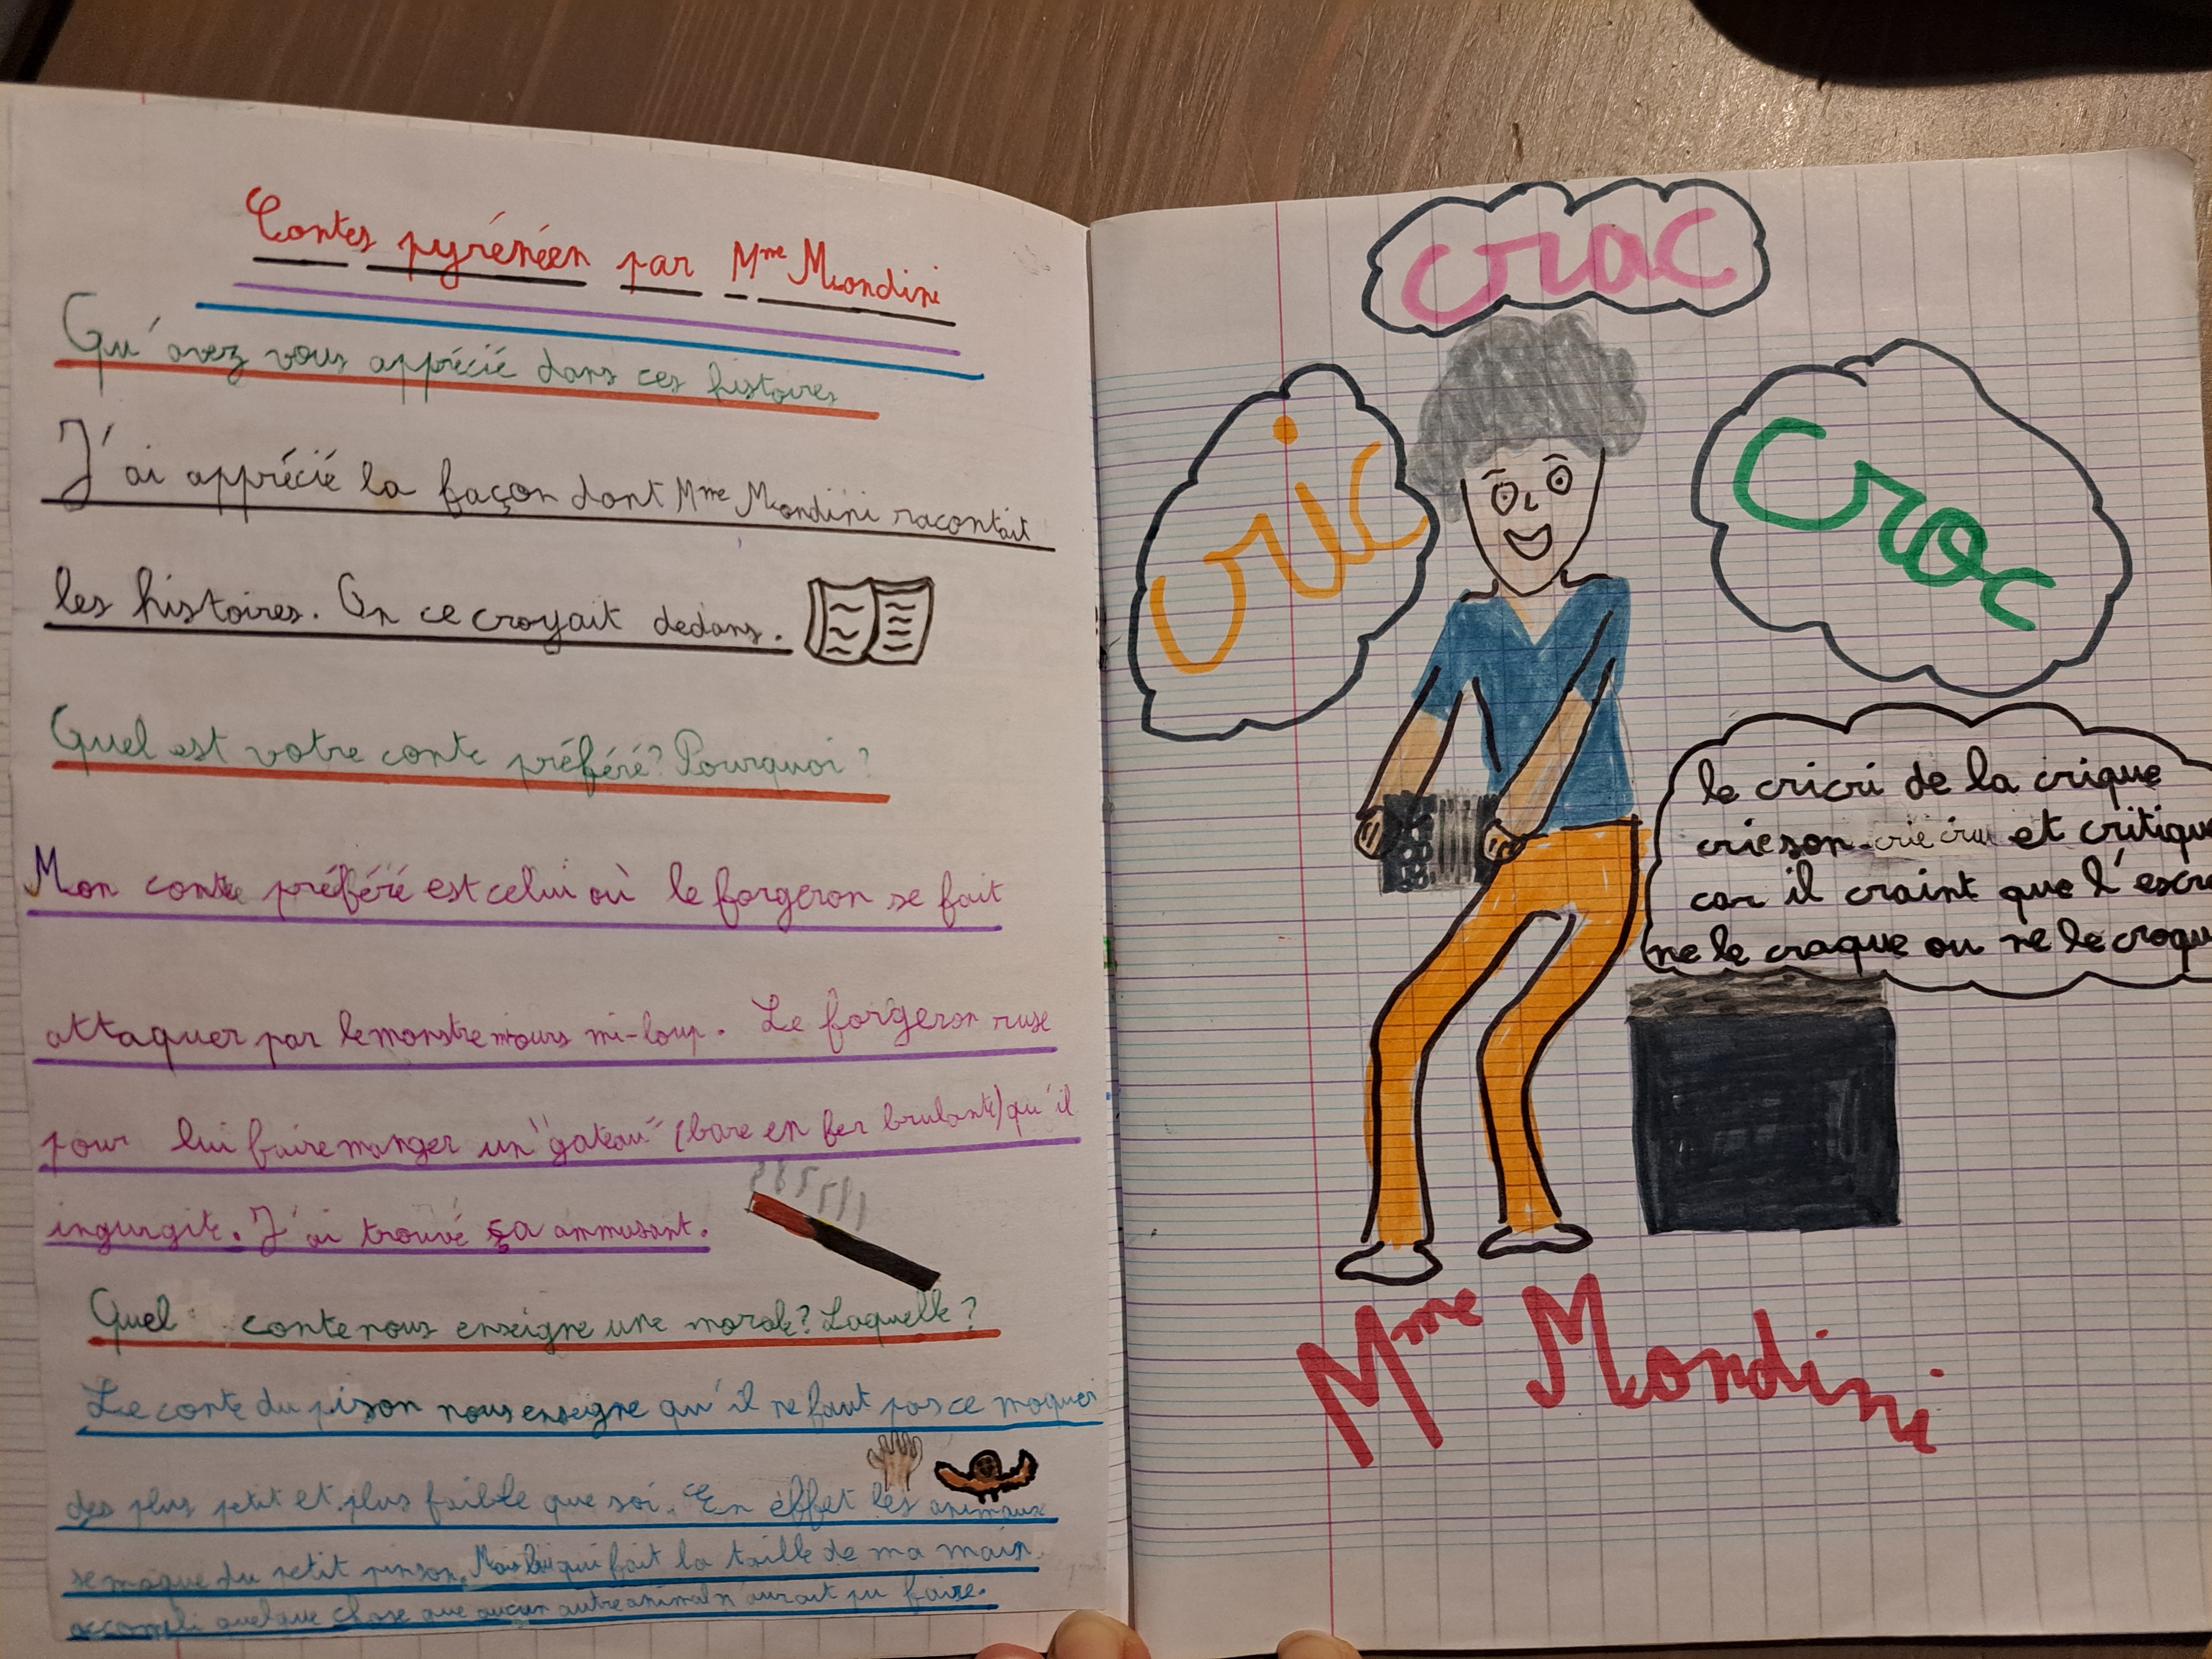 Contes pyrénéen par Mme Mondini
Qu'avez vous apprécié dans ces histoires
J'ai apprécié la façon dont Mme Mondini racontait
les histoires. On ce croyait dedans.
Quel est votre conte préféré? Pourquoi?
Mon conte préféré est celui où le forgeron se fait
attaquer par le monstre mi-ours mi-loup. Le forgeron ruse
pour lui faire manger un "gateau" (bare en fer brulante) qu'il
ingurgite. J'ai trouvé ça ammusant.
Quel conte nous enseigne une morale? Laquelle?
Le conte du pison nous enseigne qu'il ne faut pas ce moquer
des plus petit et plus faible que soi. En effet les animaux
se moque du petit pinson. Mais lui qui fait la taille de ma main
accompli quelque chose que aucun autre animal n'aurait pu faire.
crac
cric
croc
le cricri de la crique
crie son crie cru et critiqu
car il craint que l'escr
ne le craque ou ne le croqu
Mme Mondini